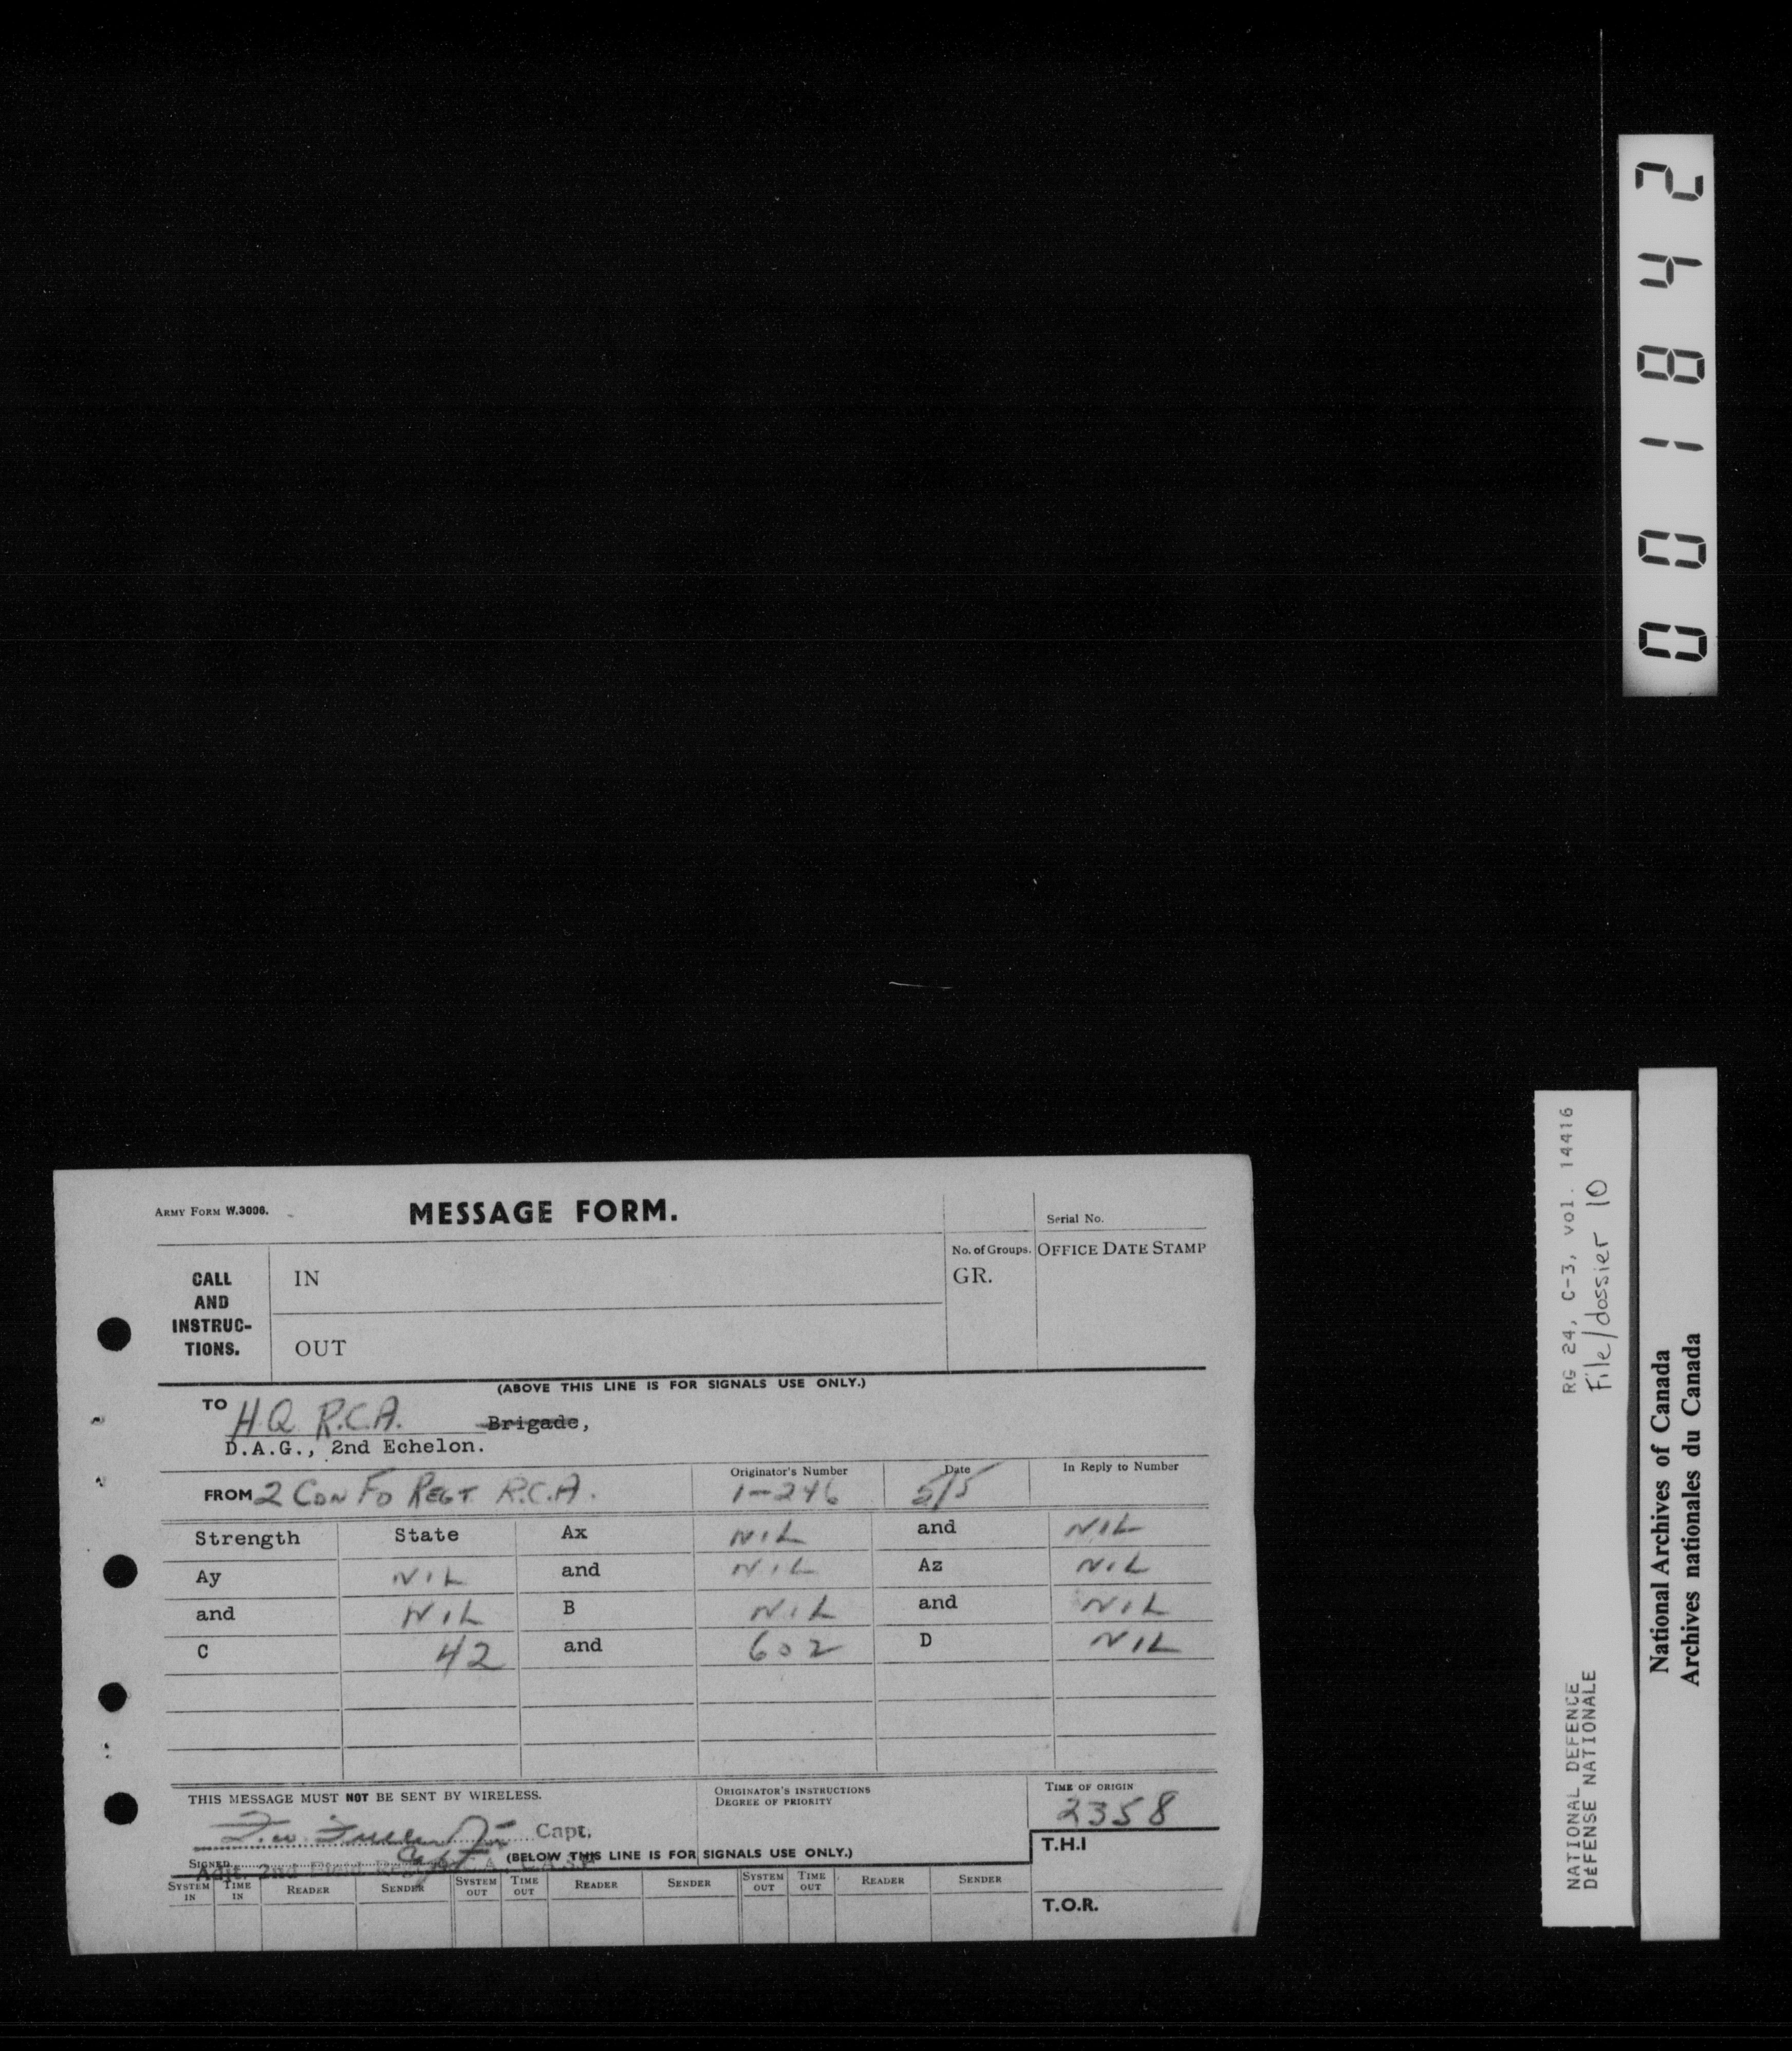 001842
ARMY FORM W.3006.
MESSAGE FORM.
Serial No.
CALL AND INSTRUC-TIONS.
IN
No. of Groups.
GR.
OFFICE DATE STAMP
OUT
(ABOVE THIS LINE IS FOR SIGNALS USE ONLY.)
TO H.Q. R.C.A. Brigade,
D.A.G., 2nd Echelon.
FROM 2 CDN FD REGT R.C.A.
Originator's Number
1-246
Date
5/5
In Reply to Number
Strength State Ax NIL and NIL
Ay NIL and NIL Az NIL
and NIL B NIL and NIL
C 42 and 602 D NIL
THIS MESSAGE MUST NOT BE SENT BY WIRELESS.
ORIGINATOR'S INSTRUCTIONS
DEGREE OF PRIORITY
TIME OF ORIGIN
2358
Capt.
Capt
SIGNED
Adjt. 2nd Field Regt
(BELOW THIS LINE IS FOR SIGNALS USE ONLY.)
T.H.I
SYSTEM IN TIME IN READER SENDER SYSTEM OUT TIME OUT READER SENDER SYSTEM OUT TIME OUT READER SENDER
T.O.R.
NATIONAL DEFENCE RG 24, C-3, vol. 14416
DÉFENSE NATIONALE File/dossier 10
National Archives of Canada
Archives nationales du Canada